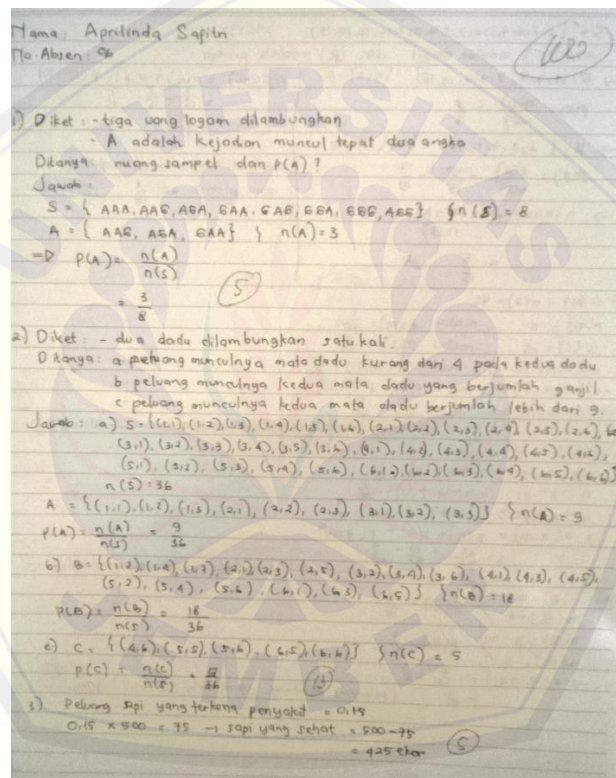 Nama : Aprilinda Safitri
No. Absen : 06
100
1) Diket : - tiga uang logam dilambungkan
- A adalah kejadian muncul tepat dua angka
Ditanya : ruang sampel dan P(A) ?
Jawab :
S = { AAA, AAG, AGA, GAA, GAG, GGA, GGG, AGG} } n(S) = 8
A = { AAG, AGA, GAA} } n(A) = 3
=D P(A) = n(A)/n(S)
= 3/8
5
2) Diket : - dua dadu dilambungkan satu kali.
Ditanya : a peluang munculnya mata dadu kurang dari 4 pada kedua dadu
b peluang munculnya kedua mata dadu yang berjumlah ganjil
c peluang munculnya kedua mata dadu berjumlah lebih dari 9.
Jawab : a) S = {(1,1), (1,2), (1,3), (1,4), (1,5), (1,6), (2,1), (2,2), (2,3), (2,4) (2,5), (2,6),
(3,1), (3,2), (3,3), (3,4), (3,5), (3,6), (4,1), (4,2), (4,3), (4,4), (4,5), (4,6),
(5,1), (5,2), (5,3), (5,4), (5,6), (6,1), (6,2), (6,3), (6,4), (6,5), (6,6)}
n(S) = 36
A = {(1,1), (1,2), (1,3), (2,1), (2,2), (2,3), (3,1), (3,2), (3,3)} } n(A) = 9
P(A) = n(A)/n(S) = 9/36
b) B = {(1,2), (1,4), (2,1), (2,3), (2,5), (3,2), (3,4), (3,6), (4,1), (4,3), (4,5),
(5,2), (5,4), (5,6), (6,1), (6,3), (6,5)} } n(B) = 18
P(B) = n(B)/n(S) = 18/36
c) C = {(4,6), (5,5), (5,6), (6,5), (6,6)} } n(C) = 5
P(C) = n(C)/n(S) = 5/36
13
3) Peluang sapi yang terkena penyakit = 0,15
0,15 x 500 = 75 → sapi yang sehat = 500 - 75
= 425 ekor
5
UNIVERSITAS
JEMBER